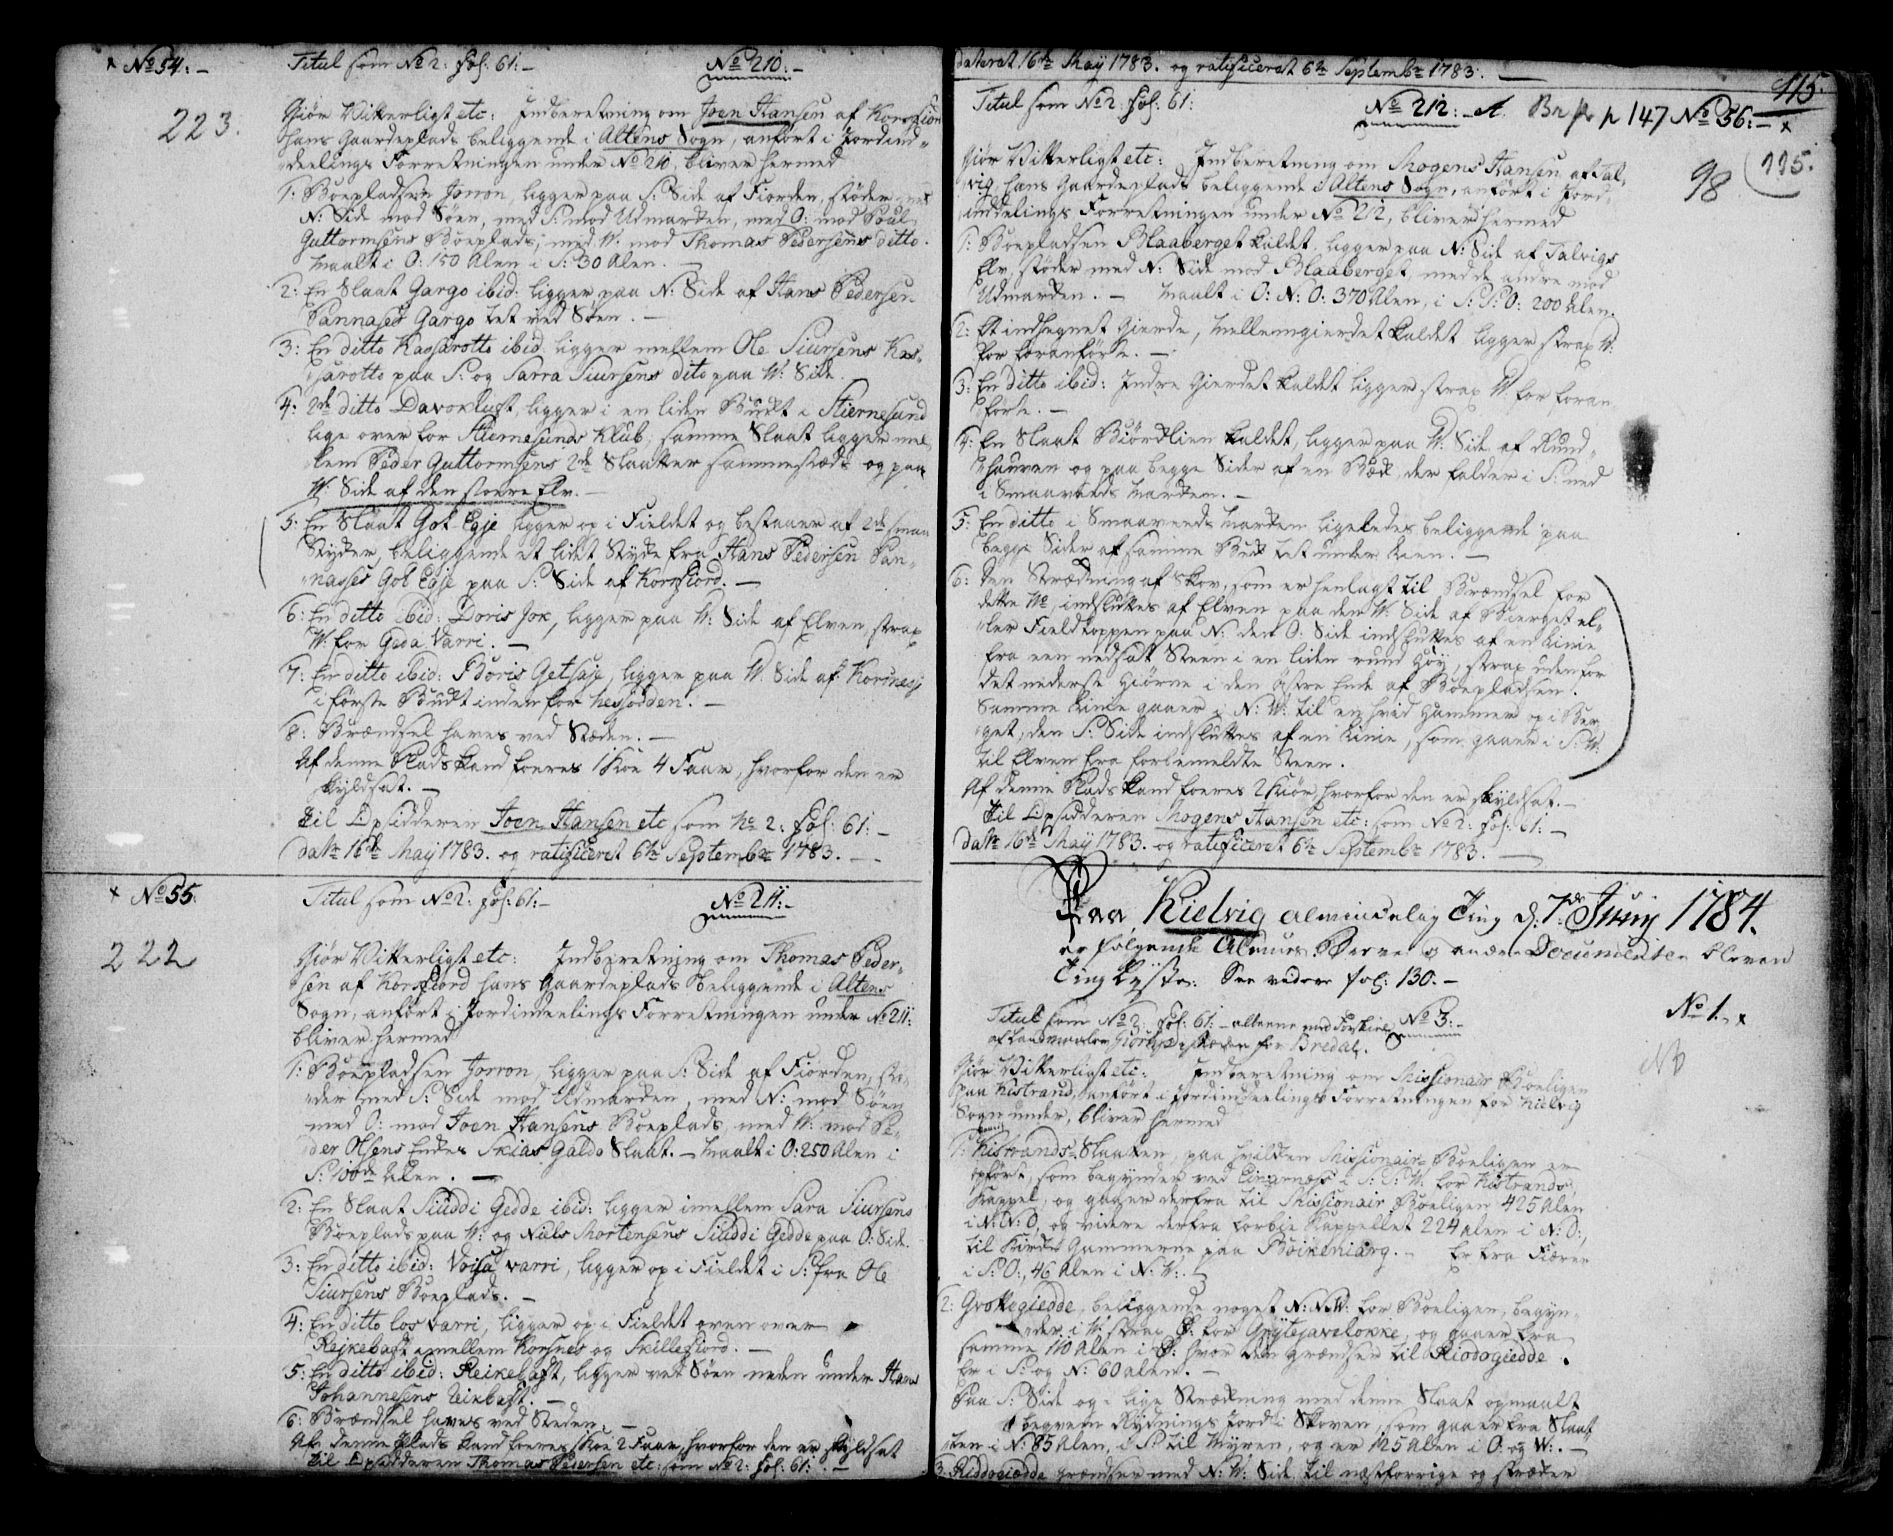 × No 54:- Titul som No 2: fol: 61:- No 210:-
223.
Giør Vitterligt etc: Indberetning om Joen Hansen af Korsfiord
hans Gaardeplads beliggende i Altens Sogn, anført i Jordind-
deelings Forretningen under No 210, bliver hermed
1: Boepladsen Jorron, ligger paa S: Side af Fiorden, støder med
N: Side mod Søen, med S: mod Udmarken, med O: mod Poul
Guttormsens Boeplads, med W: mod Thomas Pedersens ditto.
Maalt i O: 150 Alen i S: 30 Alen. -
2: En Slaat Gargo ibid: ligger paa N: Side af Hans Pedersen
Pannases Gargo tet ved Søen. -
3: En ditto Kassarotto ibid: ligger mellem Ole Siursens Kas-
sarotto paa S: og Sarra Siursens dito paa W: Side.
4: 2de ditto Davokluft, ligger i en liden Bugt i Stiernesund
lige over for Stiernesunds Klub, samme Slaat ligger mel-
lem Peder Guttormsens 2de Slaatter sammesteds og paa
W: Side af den storre Elv. -
5: En Slaat Gol-Egje ligger op i Fieldet og bestaaer af 2de smaa
Stykker, beliggende et lidet Stykke fra Hans Pedersen Pan-
nasses Gol Egje paa S: Side af Korsfiord. -
6: En ditto ibid: Doris Jok, ligger paa W: Side af Elven, strax
W: for Geda Varri. -
7: En ditto ibid: Boris Getsase, ligger paa W: Side af Korsnes
i første Bugt inden for Nesodden. -
8: Brændsel haves ved Stæden. -
Af denne Plads kand foeres 1 Koe 4 Faar, hvorfor den er
skyldsat. -
Til Opsidderen Joen Hansen etc som No 2: fol: 61:-
date 16de May 1783. og ratificeret 6te Septembr 1783. -
× No 55. Titul som No 2: fol: 61:- No 211:-
222
Giør Vitterligt etc: Indberetning om Thomas Peder-
sen af Korsfiord hans Gaardeplads beliggende i Altens
Sogn, anført i Jordindeelings Forretningen under No 211:
bliver hermed
1: Boepladsen Jorron, ligger paa S: Side af Fiorden, stø-
der med S: Side mod Udmarken, med N: mod Søen
med O: mod Joen Hansens Boeplads, med W: mod Pe-
der Olsens Enkes Skias Galdo Slaat. - Maalt i O: 250 Alen i
S: 100de Alen. -
2: En Slaat Siuddi Gedde ibid: ligger imellem Sara Siursens
Boeplads paa W: og Niels Mortensens Siuddi Gedde paa O: Side.
3: En ditto ibid: Voisa varri, ligger op i Fieldet i S: fra Ole
Siursens Boeplads. -
4: En ditto los varri, ligger op i Fieldet oven over
Reikebaft emellem Korsnes og Skillefiord. -
5: En ditto ibid: Reikebaft, ligger ved Søen neden under Hans
Johannesens Reikbaft. -
6: Brændsel haves ved Steden. -
Af denne Plads kand foeres 1 Koe 2 Faar, hvorfor den er skyldsat
til Opsidderen Thomas Pedersen etc: som No 2: fol: 61: -
dateret 16de May 1783. og ratificeret 6te Septembr 1783. -
115.
Titul som No 2: fol: 61: No 212:- A. p 147 No 56:- ×
98 115.
Giør Vitterligt etc: Indberetning om Mogens Hansen af Tal-
vig, hans Gaardeplads beliggende i Altens Sogn, anført i Jord-
inddelings Forretningen under No 212, bliver hermed
1: Boepladsen Blaaberget kaldet, ligger paa N: Side af Talvigs
Elv, støder med N: Side mod Blaaberget, med de andre mod
Udmarken. - Maalt i O: N: O: 370 Alen, i S: S: O: 200 Alen.
2: Et indhegnet Gierde, Mellemgierdet kaldet ligger strax W:
for foranførte. -
3: En ditto ibid: Indre Gierdet kaldet ligger strax W for foran
førte. -
4: En Slaat Biørklien kaldet, ligger paa W: Side af Rund-
hauven og paa begge Sider af en Bæk, der falder i S: ned
i Smaaveeds Marken. -
5: En ditto i Smaaveeds Marken ligeledes beliggende paa
begge Sider af samme Bæk tet under Lien. -
6: Den Strækning af Skov, som er henlagt til Brændsel for
dette No, indsluttes af Elven paa den W: Side af Bierget el-
ler Fieldtoppen paa N: den O: Side indsluttes af en Linie
fra een nedsat Steen i en liden rund Høy, strax uden for
det nederste Hiørne i den østre Ende af Boepladsen.
Samme Linie gaaer i N: W: til en hvid Hammer op i Ber-
get, den S: Side indsluttes af en Linie, som gaaer i S: W:
til Elven fra forbemeldte Steen.
Af denne Plads kand foeres 2 Kiør, hvorfor den er skyldsat. -
Til Opsidderen Mogens Hansen etc: som No 2: fol: 61: -
date 16de May 1783. og ratificeret 6te Septembr 1783. -
Paa Kielvig almindelig Ting d: 7de Junij 1784.
er følgende Breve og andre Documenter bleven
Ting lyste: See videre fol: 130. -
Titul som No 2. fol: 61:- alleene med Forskiel No 3:- No 1. ×
af Landmaaler for Bredal.
Nb
Giør Vitterligt etc: Indberetning om Missionair Boeligen
paa Kistrand, anført i Jordindeelings Forretningen for Kielvig
Sogn under, bliver hermed
1: Kistrands Slaatten, paa hvilken Missionair-Boeligen er
opført, som begynder ved Tingnæss i S: S: W: for Kistrands
Kappel, og gaaer derfra til Missionair Boeligen 425 Alen
i N: N: O, og videre derfra forbie Kappellet 224 Alen i N: O:,
til Kirke Gammerne paa Boikeniarg. - Er fra Fiæren
i S: O:, 46 Alen i N: W:
2: Grokkegiedde, beliggende noget N: N: W: for Boeligen, begyn-
der i W: strax for Gøytejavelokke, og gaaer fra
samme 110 Alen i O: hvor den grændser til Riodogiedde.
Er i S: og N: 60 alen. -
Paa S: Side og i lige Strækning med denne Slaat opmaalt
beqvem Rydnings Jord i Skoven, som gaaer fra Slaat
ten i N: 85 Alen, i S: til Myren, og er 125 Alen i O: og W:. -
3: Riddogiædde grændser med N: W: Side til næstforrige og stræker